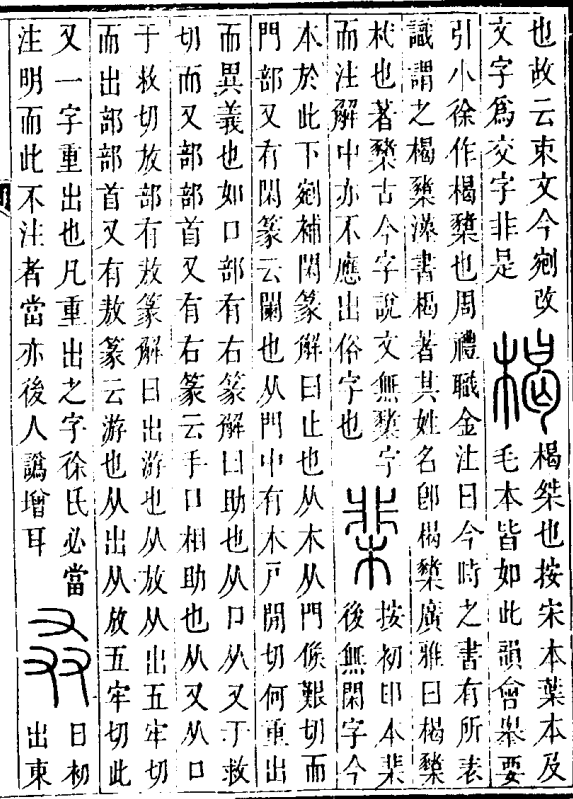 也故云束文今剜改
文字爲交字非是
楬
楬桀也按宋本葉本及
毛本皆如此韻會舉要
引小徐作楬櫫也周禮職金注曰今時之書有所表
識謂之楬櫫漢書楬著其姓名卽楬櫫廣雅曰楬櫫
杙也著櫫古今字說文無櫫字
而注解中亦不應出俗字也
棐
按初印本棐
後無閑字今
本於此下剜補閑篆解曰止也从木从門侯艱切而
門部又有閑篆云闌也从門中有木戸閒切何重出
而異義也如口部有右篆解曰助也从口从又于救
切而又部部首又有右篆云手口相助也从又从口
于救切放部有敖篆解曰出游也从放从出五牢切
而出部部首又有敖篆云游也从出从放五牢切此
又一字重出也凡重出之字徐氏必當
注明而此不注者當亦後人譌增耳
叒
日初
出東